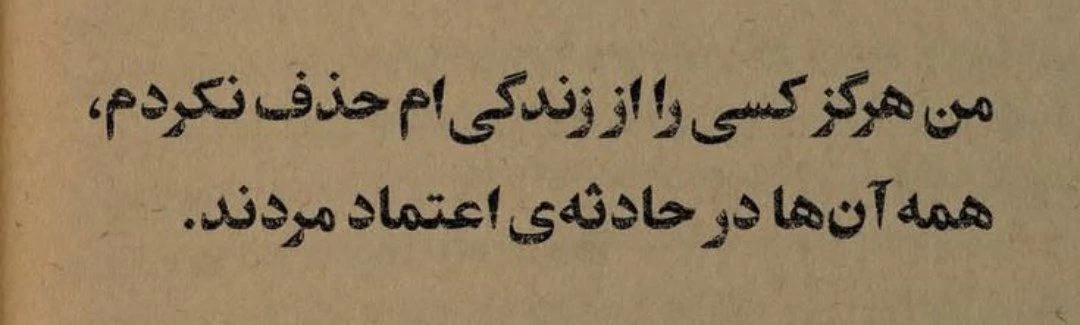 من هرگز کسی را از زندگی ام حذف نکردم،
همه آن‌ها در حادثه‌ی اعتماد مردند.